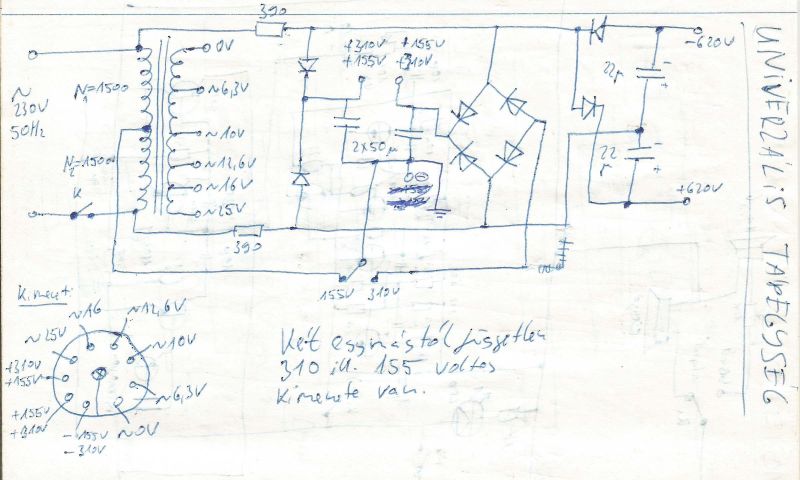 390
0V
+310V +155V
+155V +310V
-620V
N1=1500
~6,3V
22µ
~
230V
50Hz
~10V
2x50µ
N2=1500
~12,6V
22µ
~16V
K
~25V
+620V
390
155V 310V
UNIVERZÁLIS TÁPEGYSÉG
Kimenet:
~16
~12,6V
~25V
~10V
+310V
+155V
~6,3V
+155V
+310V
-155V
-310V
~0V
Két egymástól független
310 ill. 155 voltos
kimenete van.